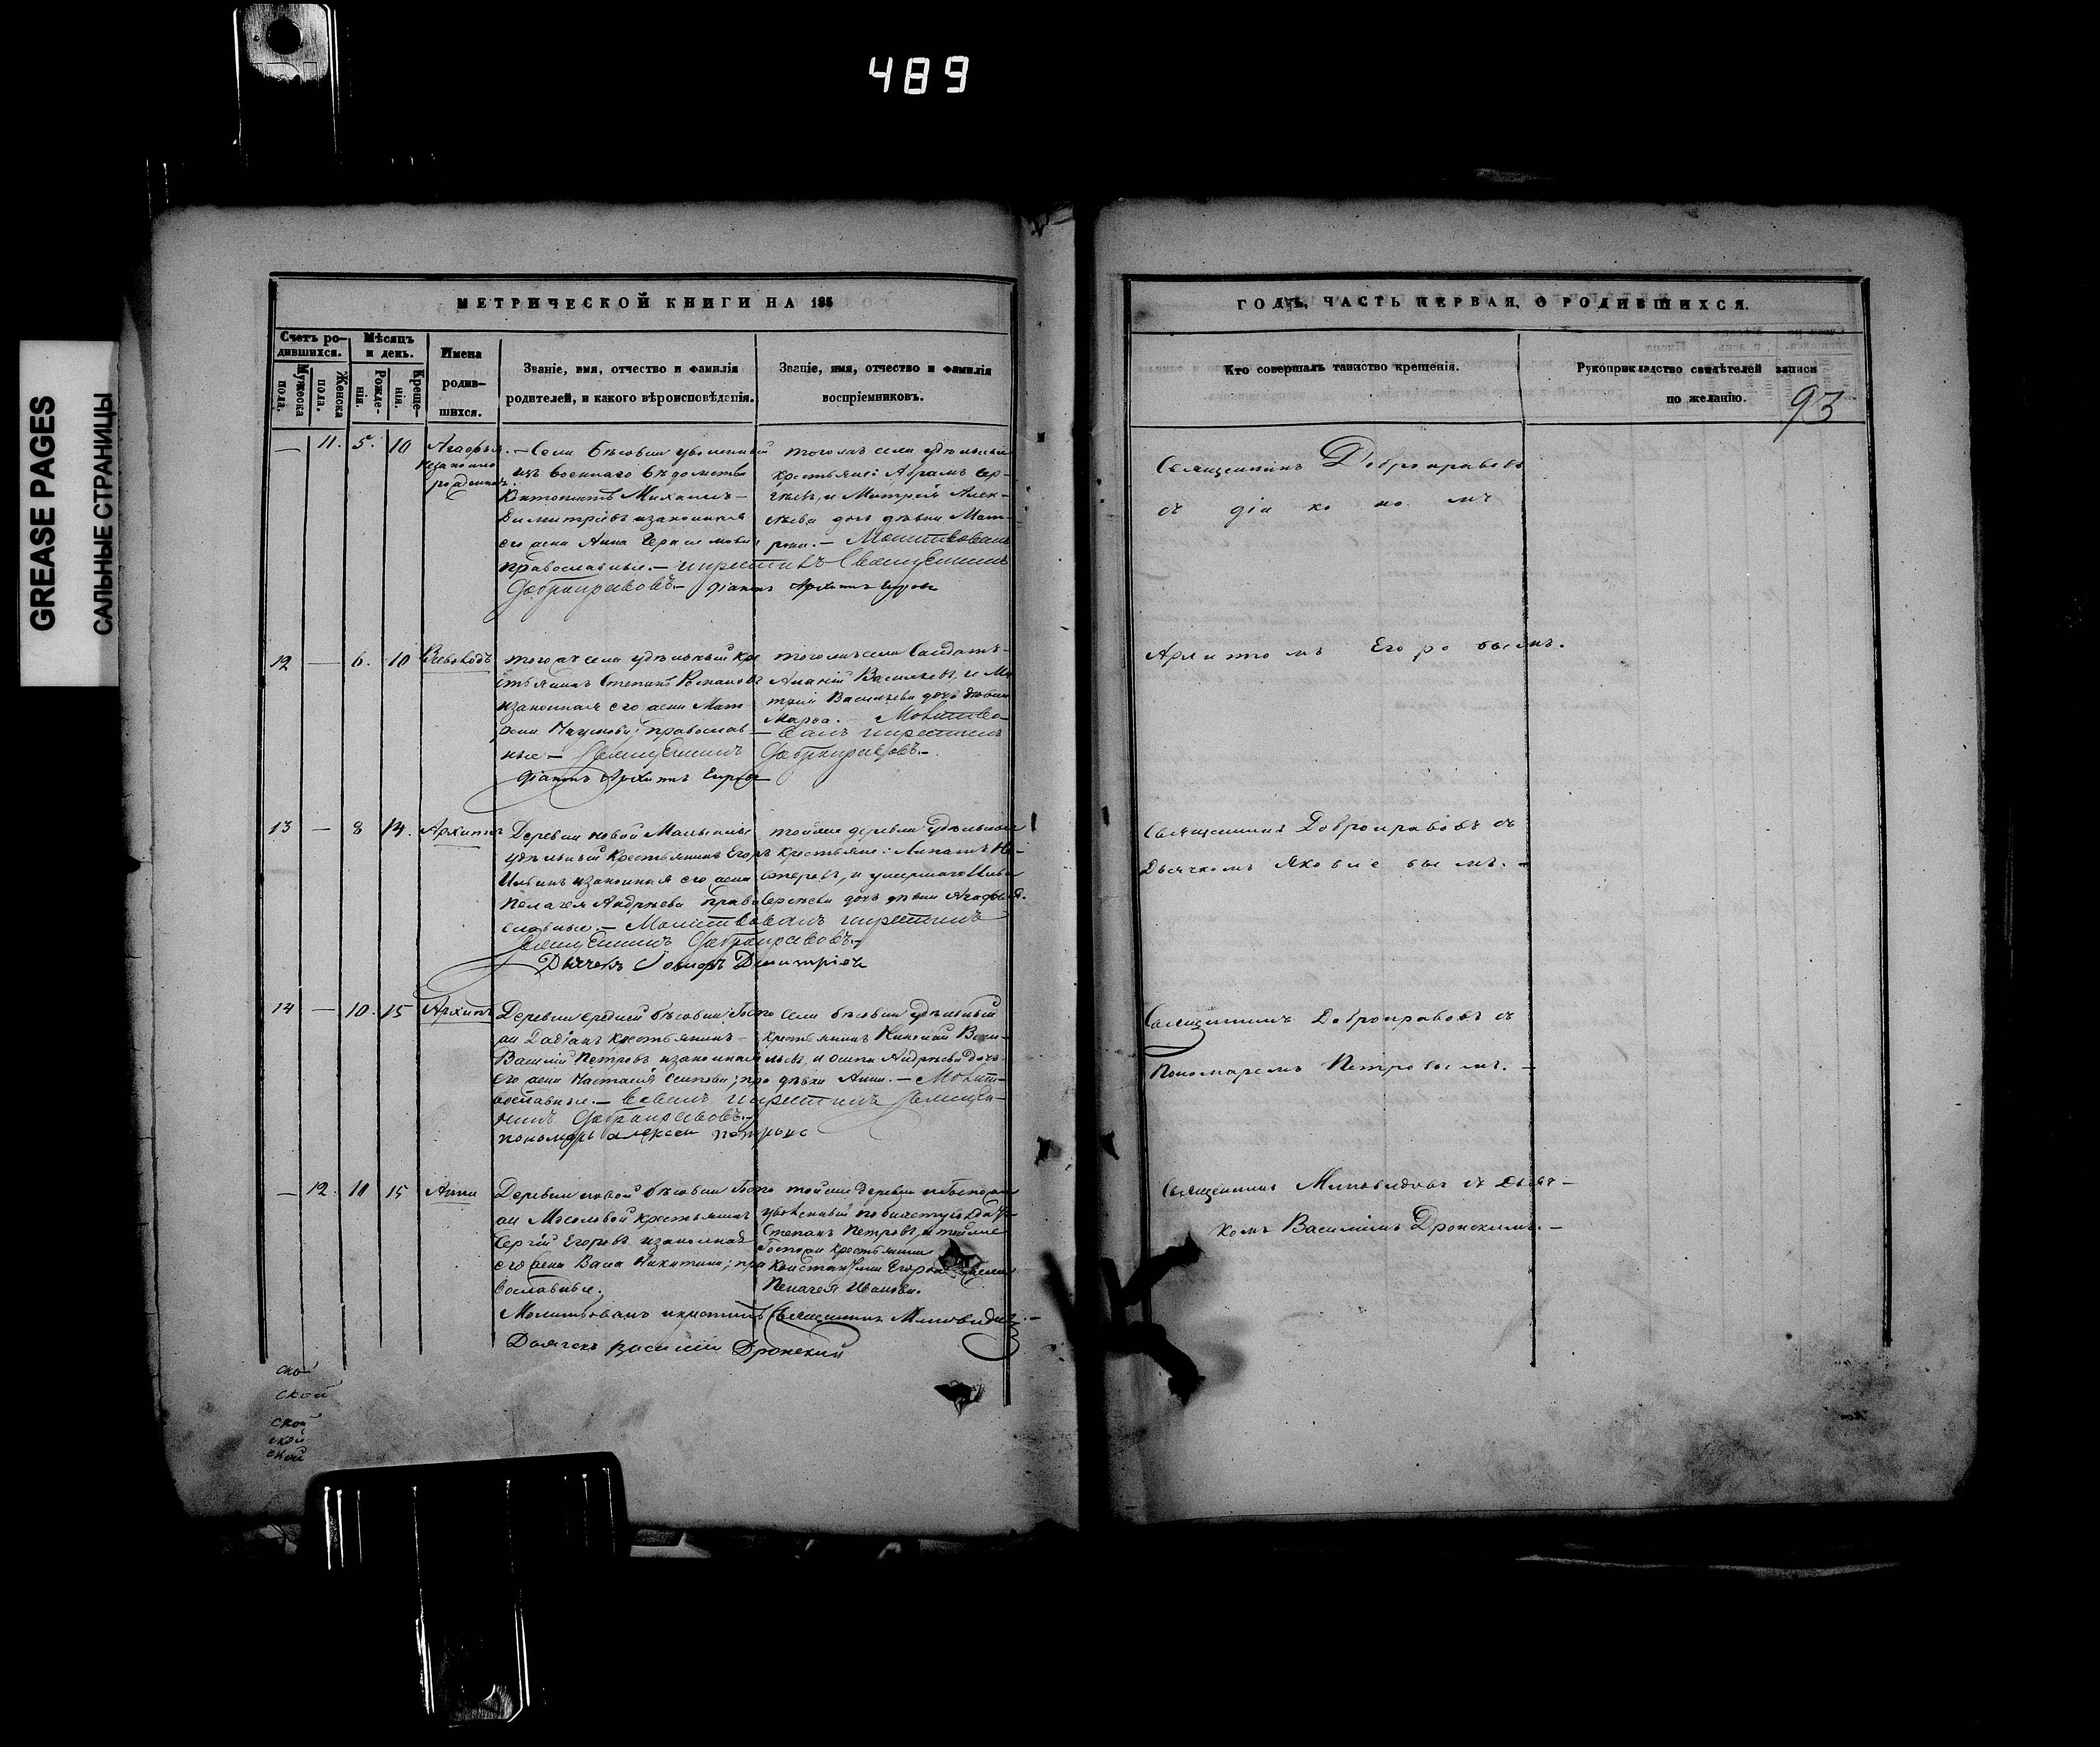 489
GREASE PAGES
САЛЬНЫЕ СТРАНИЦЫ
МЕТРИЧЕСКОЙ КНИГИ НА 185
Счетъ ро-
дившихся.
Мужеска
пола.
Женска
пола.
Мѣсяцъ
и день.
Рожде-
нія.
Креще-
нія.
Имена
родив-
шихся.
Званіе, имя, отчество и фамилія
родителей, и какого вѣроисповѣданія.
Званіе, имя, отчество и фамилія
воспріемниковъ.
— 11. 5. 10
незаконно
рожденная
изъ военнаго вѣдомства
Михаилъ
Димитріевъ изаконная
его жена Анна Герасимова
православные. — икрестилъ Священникъ
Добронравовъ. — діаконъ Архипъ Егоровъ
тогожъ села удѣльные
крестьяне: Абрамъ Сер-
гѣевъ, и Матрена Алек-
сѣева дочь дѣвка
Молитвовалъ
12 — 6. 10 Всеволодъ
тогожъ села удѣльный кре
стьянинъ Степанъ Романовъ
изаконная его жена Мат-
рена Наумова; православ-
ные — Священникъ Добронравовъ. —
діаконъ Архипъ Егоровъ
тогожъ села Солдатъ
Ананій Васильевъ, и
Васильева дочь дѣвка
Марѳа. — Молитво-
валъ икрестилъ
13 — 8 14. Архипъ
Деревни новой
удѣльный крестьянинъ Егоръ
Ильинъ изаконная его жена
Пелагея Андреева право
славные. — Молитвовалъ икрестилъ
Священникъ Добронравовъ. —
Дьячекъ Іаковъ Димитріевъ
тойже деревни удѣльные
крестьяне: Липатъ
и умершаго
дочь дѣвка Агафья.
14 — 10. 15 Архипъ
Деревни средней бѣсовки Госпо
жи Дадіанъ крестьянинъ
Василій Петровъ изаконная
его жена Настасія Осипова; пра
вославные. — вовалъ икрестилъ Священ-
никъ Добронравовъ. —
пономарь алексѣй петровъ
села бѣсовки удѣльный
крестьянинъ Николай Васи-
льевъ, и Осипа Андреева дочь
дѣвка Анна. — Молит-
— 12. 11 15 Анна
Деревни новой бѣсовки Госпо
жи Мосоловой крестьянинъ
Сергій Егоровъ изаконная
его жена Васса Никитина; пра
вославные.
Молитвовалъ икрестилъ Священникъ Миловидовъ. —
Дьячекъ Василій Дронскій
тойже деревни
уволенный побилету
Степанъ Петровъ, и тойже
Госпожи крестьянина
Константина Егорова жена
Пелагея Иванова.
ской
ской
ской
ской
ской
ГОДЪ, ЧАСТЬ ПЕРВАЯ, О РОДИВШИХСЯ.
Кто совершалъ таинство крещенія.
Рукоприкладство свидѣтелей записи
по желанію.
93
Священникъ Добронравовъ
съ діакономъ
Архипомъ Егоровымъ.
Священникъ Добронравовъ съ
Дьячкомъ Яковлевымъ. —
Священникъ Добронравовъ съ
Пономаремъ Петровымъ. —
Священникъ Миловидовъ съ Дьяч-
комъ Василіемъ Дронскимъ. —